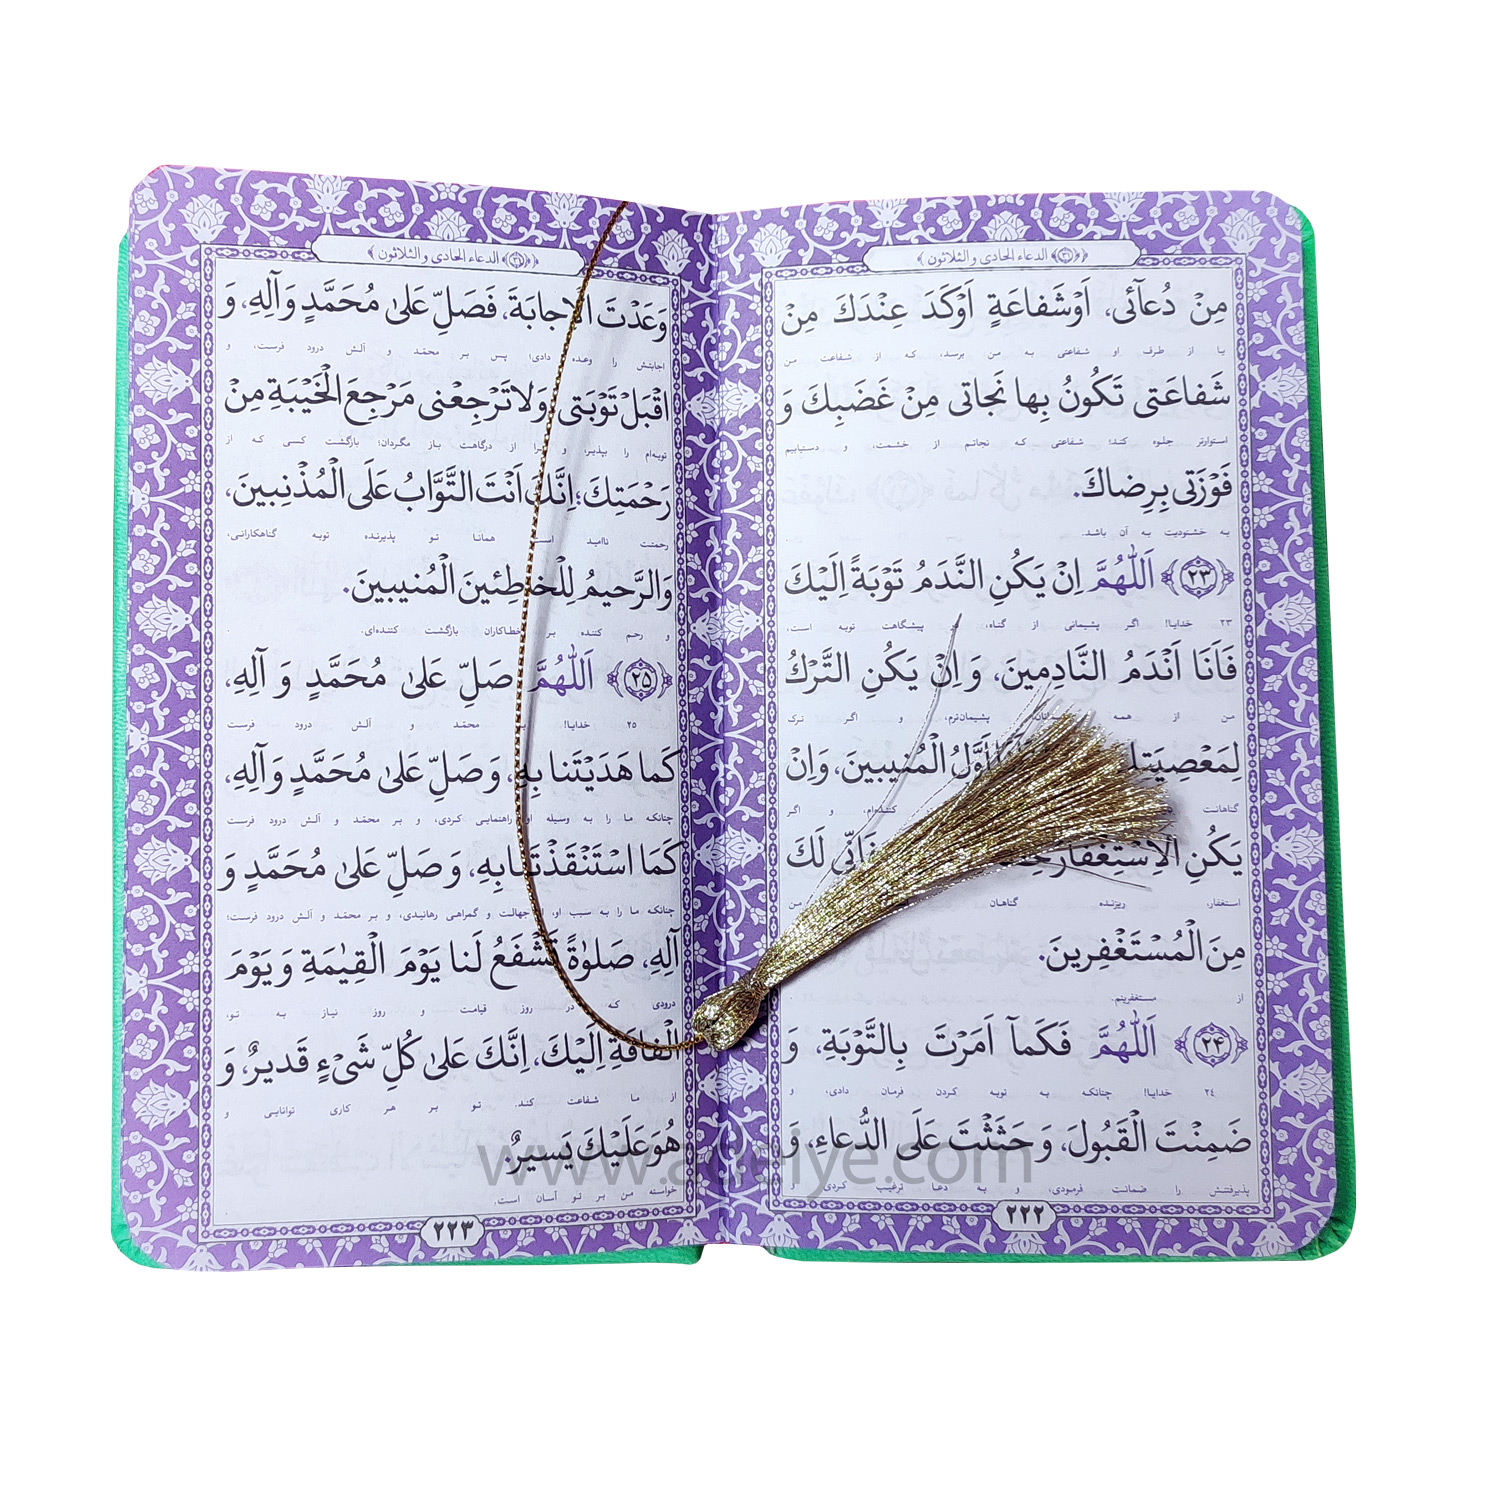 ﴿۳۱﴾ الدعاء الحادی و الثلاثون
مِنْ دُعآئی، اَوْشَفاعَةٍ اَوْكَدَ عِنْدَكَ مِنْ
یا از طرف او شفاعتی به من برسد، که از شفاعت من
شَفاعَتی تَكُونُ بِها نَجاتی مِنْ غَضَبِكَ وَ
استوارتر جلوه کند؛ شفاعتی که نجاتم از خشمت، و دستیابیم
فَوْزَتی بِرِضاكَ.
به خشنودیت به آن باشد.
﴿۲۳﴾ اَللّٰهُمَّ اِنْ يَكُنِ النَّدَمُ تَوْبَةً اِلَيْكَ
۲۳ خدایا! اگر پشیمانی از گناه، به پیشگاهت توبه است،
فَاَنَا اَنْدَمُ النَّادِمينَ، وَ اِنْ يَكُنِ التَّرْكُ
من از همه پشیمان‌ترم، و اگر ترک
لِمَعْصِيَتِكَ اَوَّلُ الْمُنيبينَ، وَ اِنْ
گناهانت کننده‌ام، و اگر
يَكُنِ الْاِسْتِغْفارُ فَاِنّی لَكَ
استغفار، ریزنده گناهان من
مِنَ الْمُسْتَغْفِرينَ.
از مستغفرینم.
﴿۲۴﴾ اَللّٰهُمَّ فَكَمآ اَمَرْتَ بِالتَّوْبَةِ، وَ
۲۴ خدایا! چنانکه به توبه کردن فرمان دادی، و
ضَمِنْتَ الْقَبُولَ، وَ حَثَثْتَ عَلَی الدُّعاءِ، وَ
پذیرفتنش را ضمانت فرمودی، و به دعا ترغیب کردی
۲۲۲
﴿۳۱﴾ الدعاء الحادی و الثلاثون
وَعَدْتَ الْاِجابَةَ، فَصَلِّ عَلیٰ مُحَمَّدٍ وَ آلِهِ، وَ
اجابتش را وعده دادی؛ پس بر محمّد و آلش درود فرست، و
اقْبَلْ تَوْبَتی وَ لا تَرْجِعْنی مَرْجِعَ الْخَيْبَةِ مِنْ
توبه‌ام را بپذیر، و مرا از درگاهت باز مگردان؛ بازگشت کسی که از
رَحْمَتِكَ؛ اِنَّكَ اَنْتَ التَّوَّابُ عَلَی الْمُذْنِبينَ،
رحمتت ناامید است همانا تو پذیرنده توبه گناهکارانی،
وَ الرَّحيمُ لِلْخاطِئينَ الْمُنيبينَ.
و رحم کننده بر خطاکاران بازگشت کننده‌ای.
﴿۲۵﴾ اَللّٰهُمَّ صَلِّ عَلیٰ مُحَمَّدٍ وَ آلِهِ،
۲۵ خدایا! بر محمّد و آلش درود فرست
كَما هَدَيْتَنا بِهِ، وَ صَلِّ عَلیٰ مُحَمَّدٍ وَ آلِهِ،
چنانکه ما را به وسیله او راهنمایی کردی، و بر محمّد و آلش درود فرست
كَمَا اسْتَنْقَذْتَنا بِهِ، وَ صَلِّ عَلیٰ مُحَمَّدٍ وَ
چنانکه ما را به سبب او، از جهالت و گمراهی رهانیدی، و بر محمّد و آلش درود فرست؛
آلِهِ، صَلوٰةً تَشْفَعُ لَنا يَوْمَ الْقِيٰمَةِ وَ يَوْمَ
درودی که در روز قیامت و روز نیاز به تو،
الْفاقَةِ اِلَيْكَ، اِنَّكَ عَلیٰ كُلِّ شَیْءٍ قَديرٌ، وَ
از ما شفاعت کند. تو بر هر کاری توانایی و
هُوَ عَلَيْكَ يَسيرٌ.
خواسته من بر تو آسان است.
۲۲۳